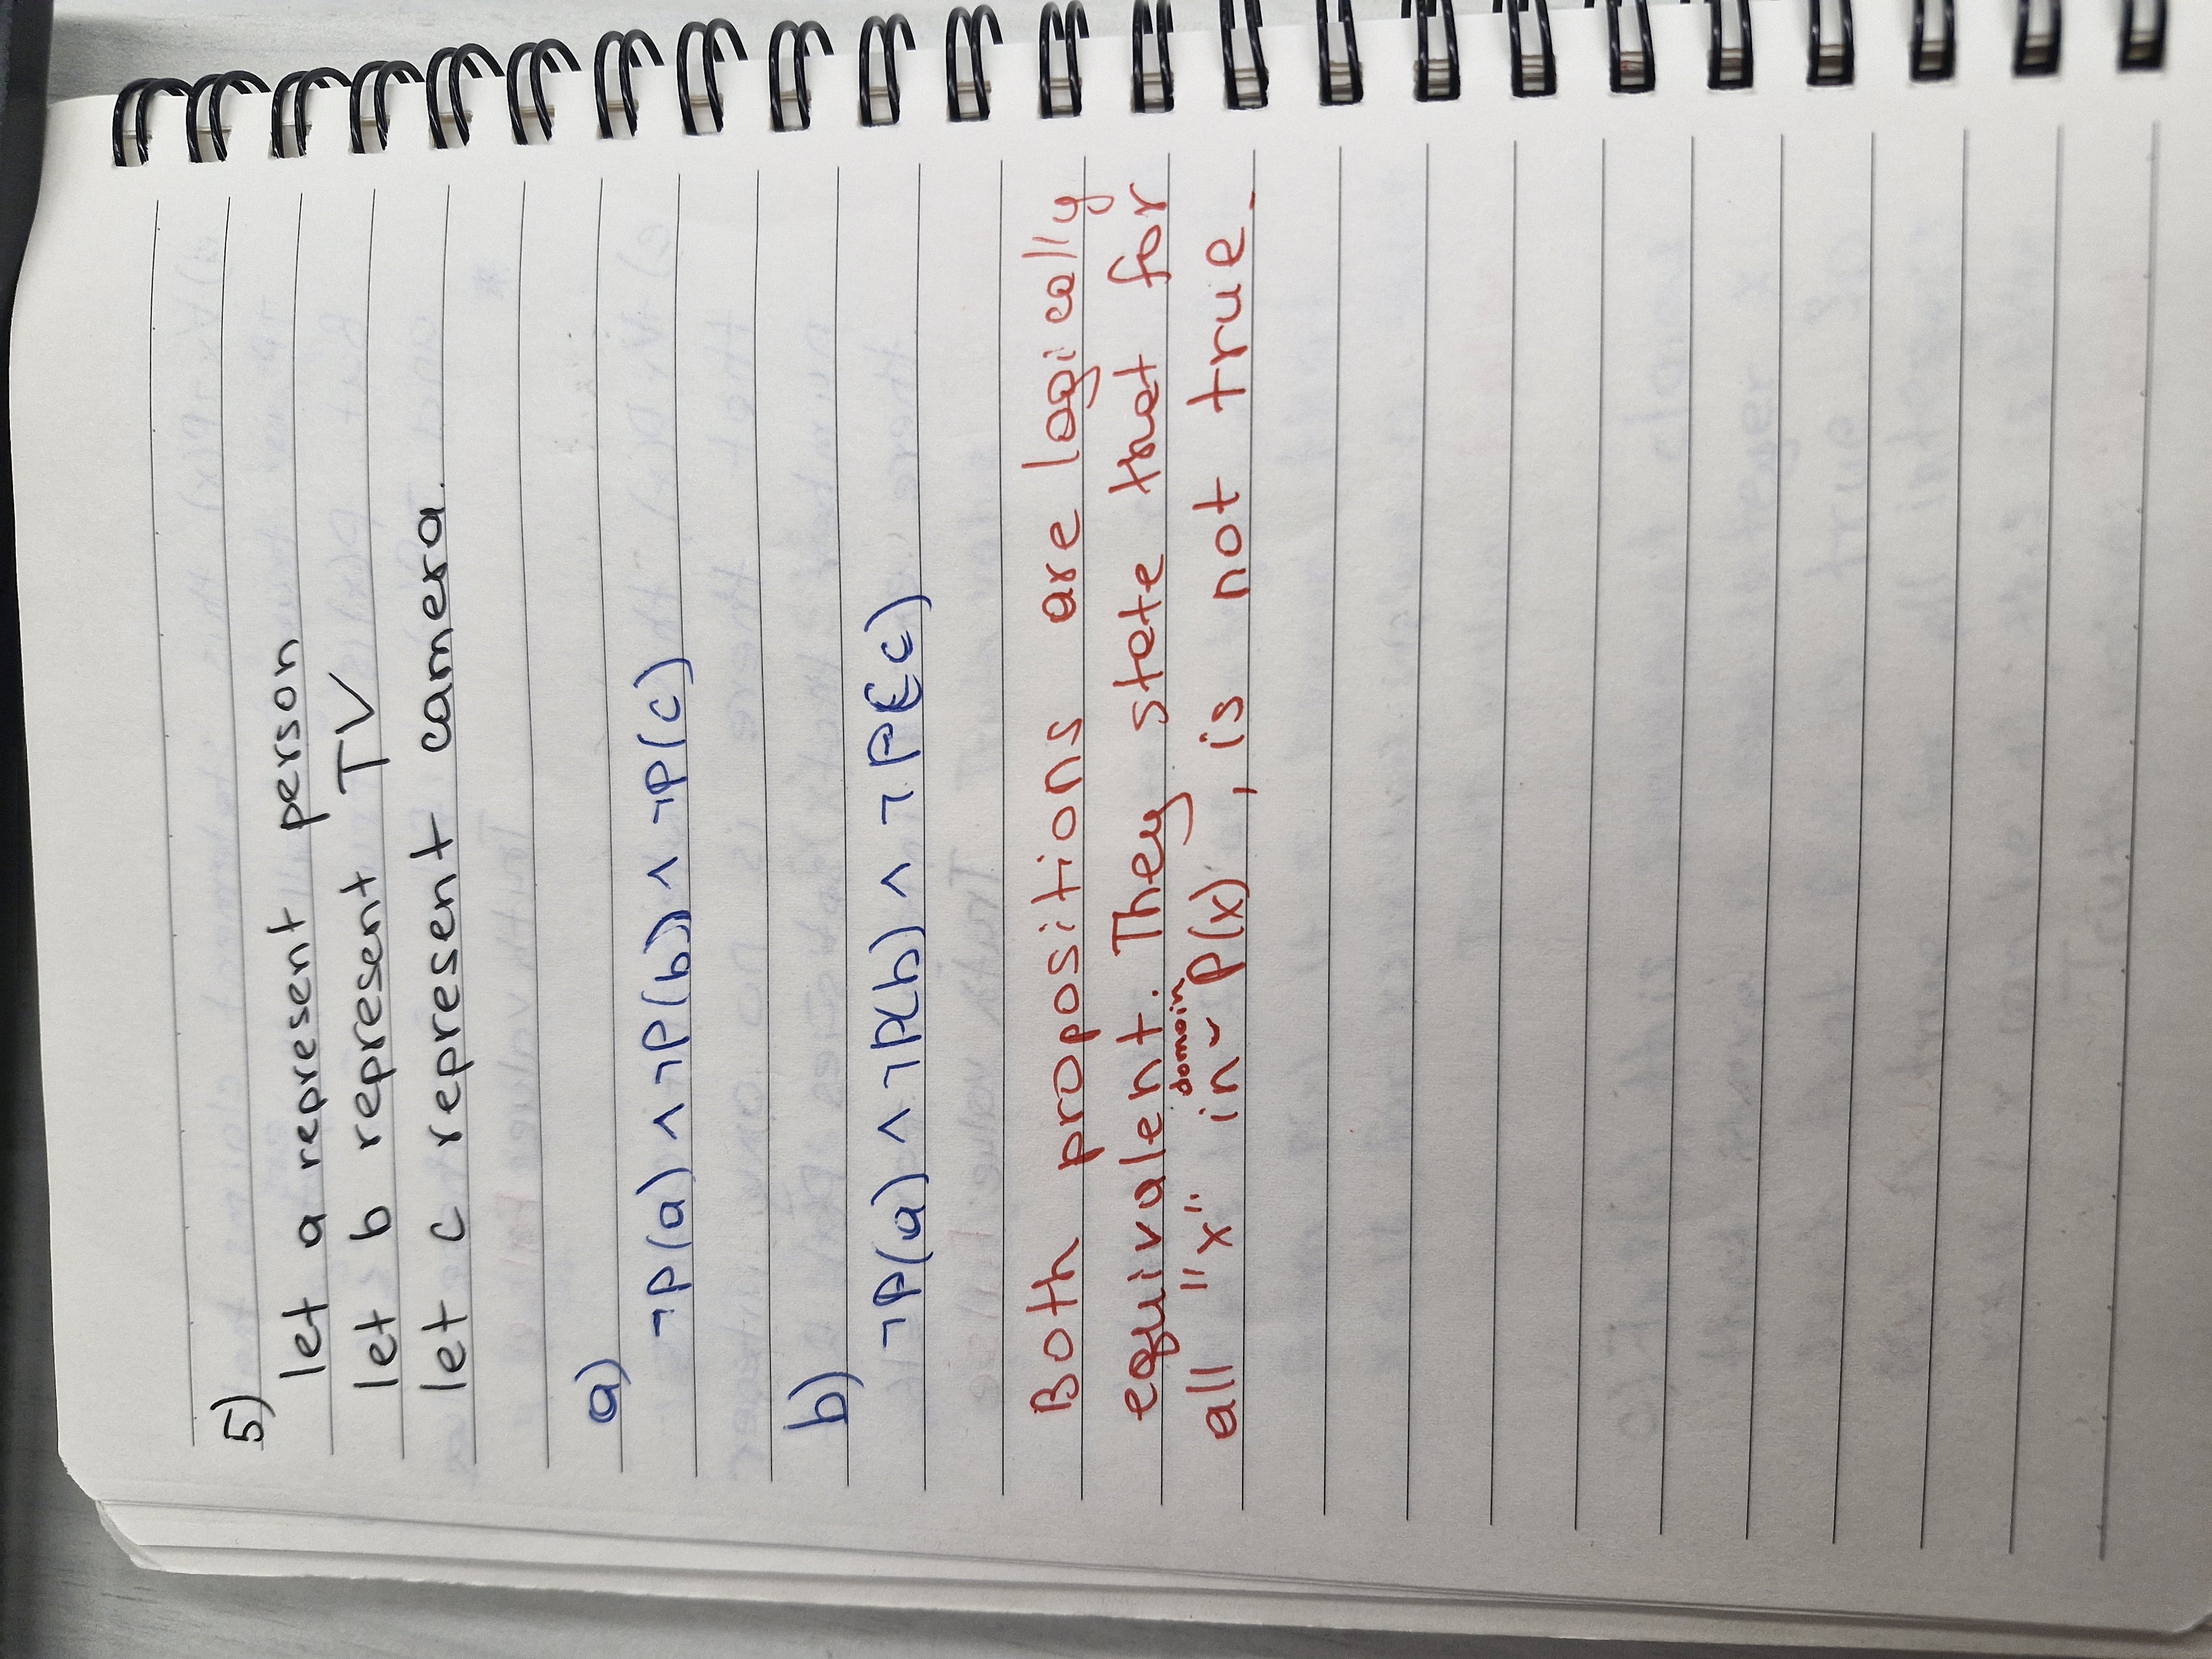 5)
let a represent person
let b represent TV
let c represent camera.
a)
¬P(a) ∧ ¬P(b) ∧ ¬P(c)
b)
¬P(a) ∧ ¬P(b) ∧ ¬P(c)
Both propositions are logically
equivalent. They state that for
domain
all "x" in P(x), is not true.